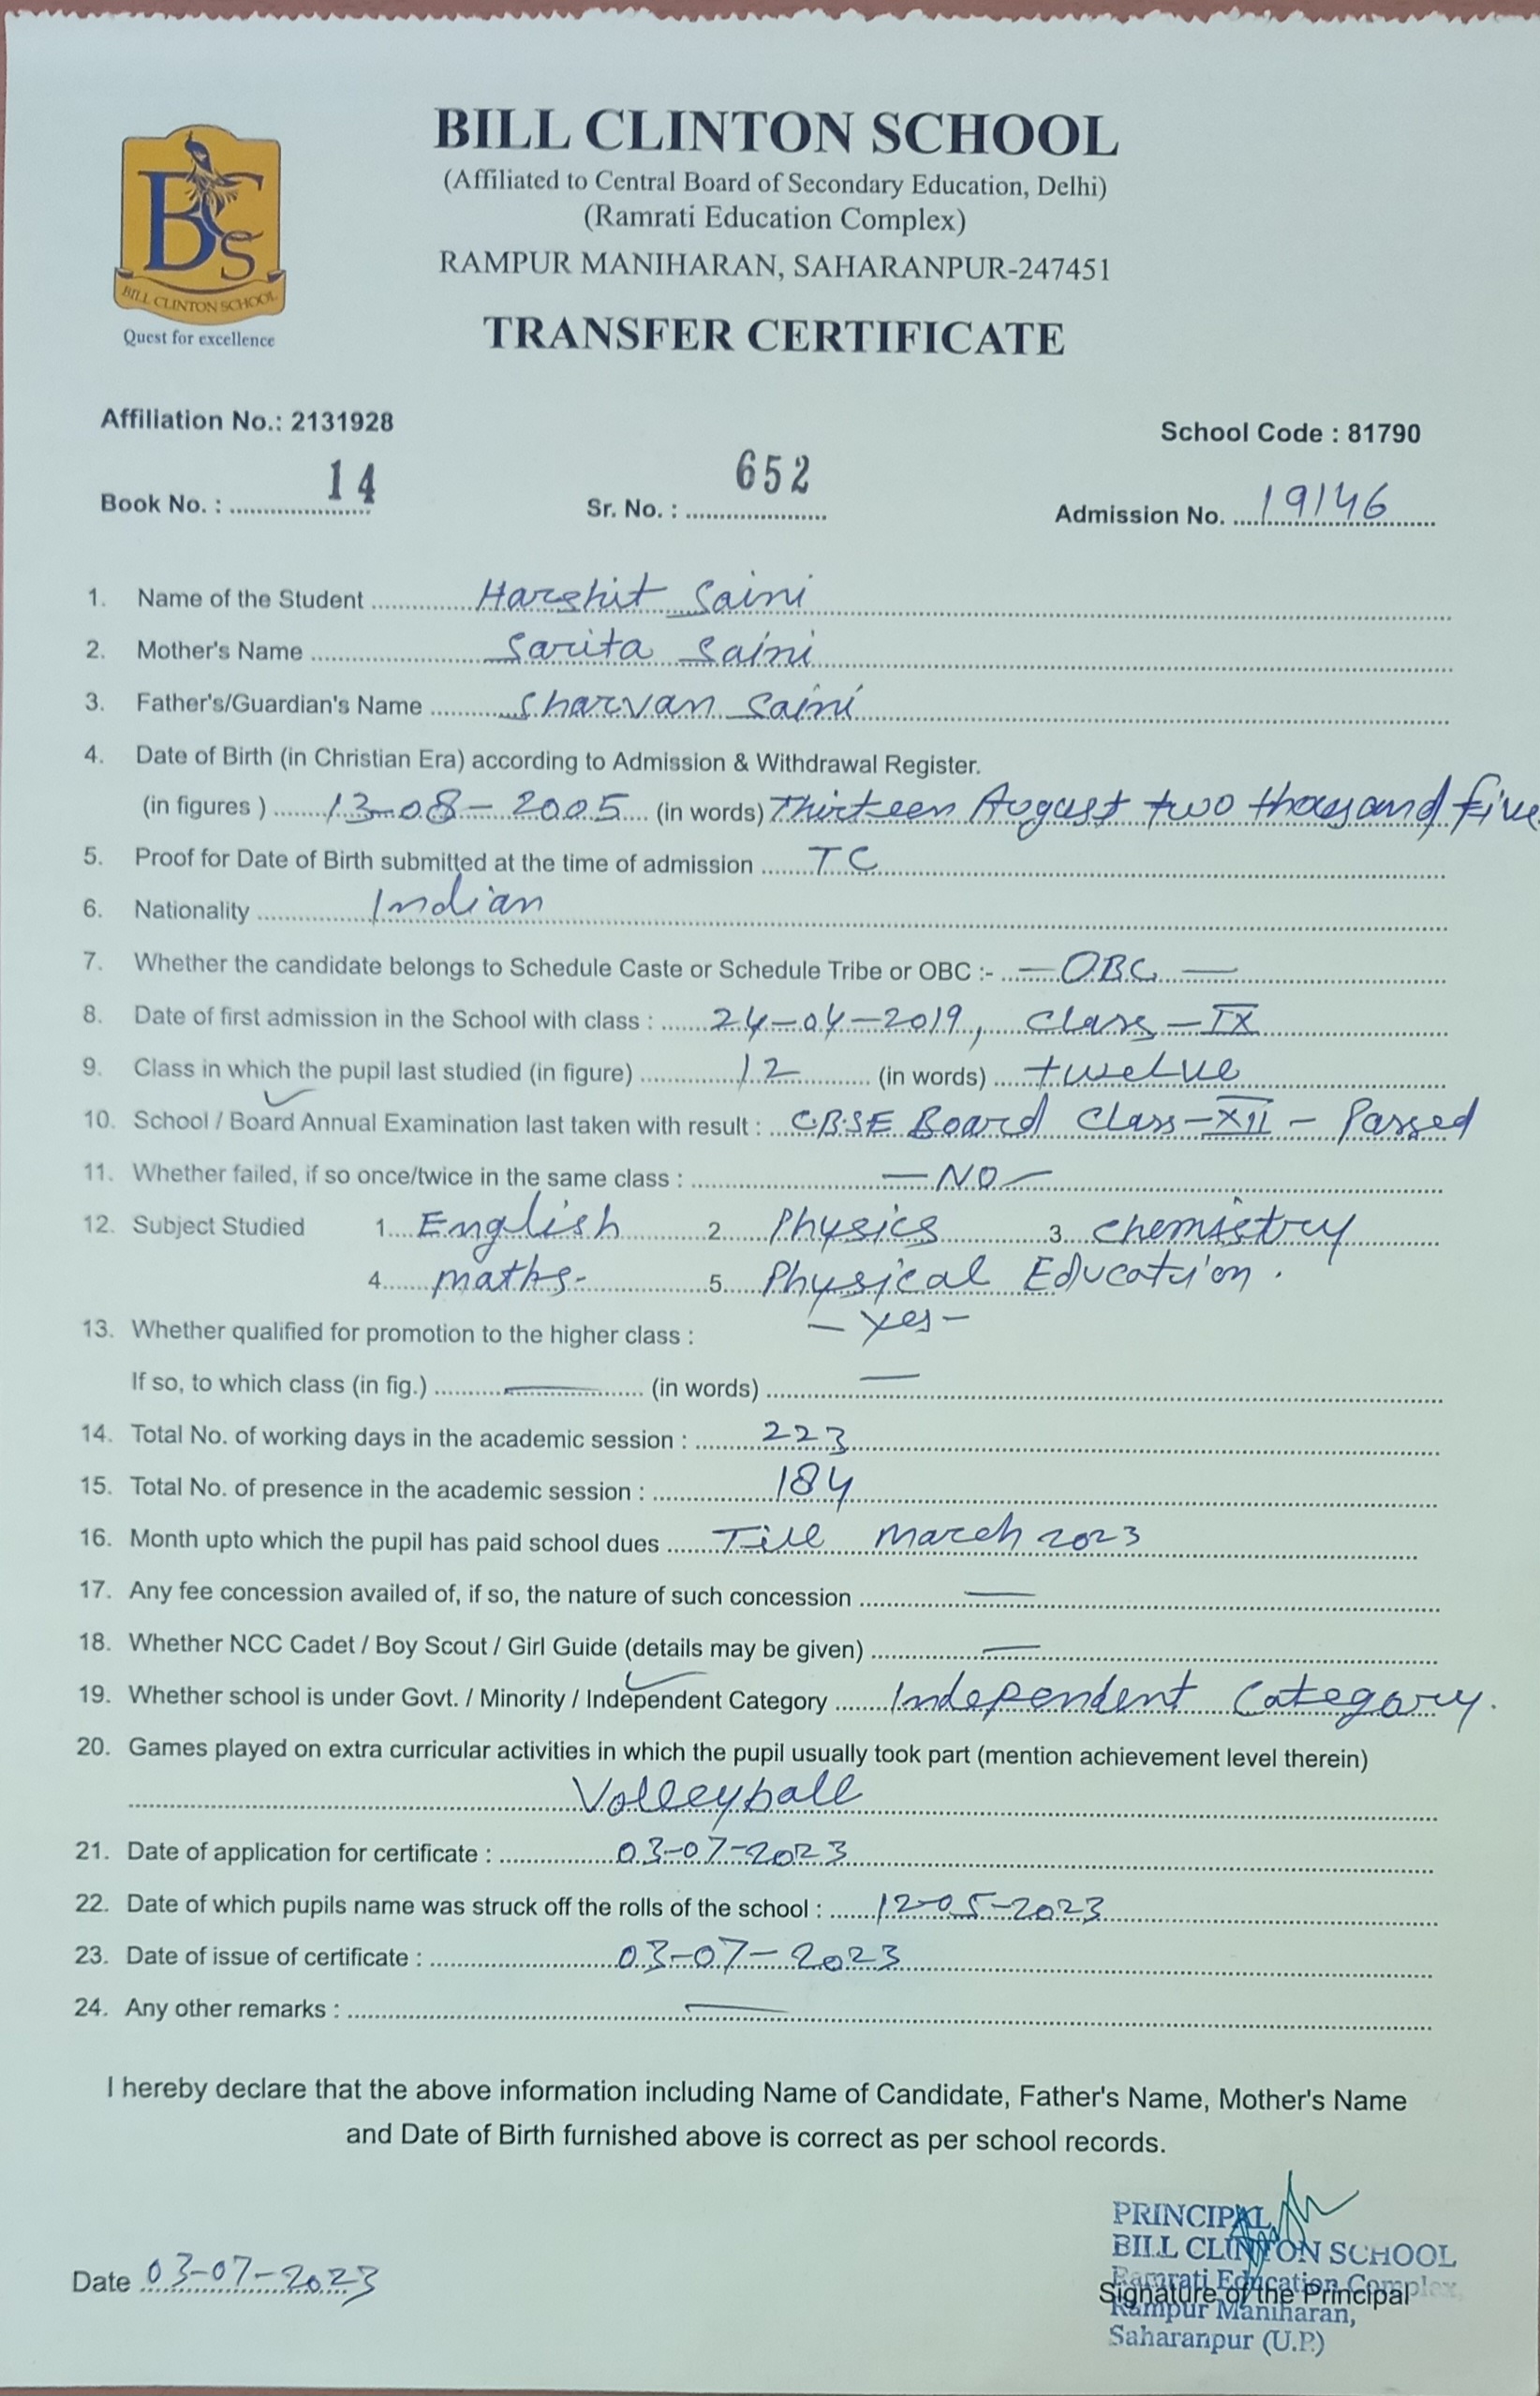 BILL CLINTON SCHOOL
(Affiliated to Central Board of Secondary Education, Delhi)
(Ramrati Education Complex)
RAMPUR MANIHARAN, SAHARANPUR-247451
BCS
BILL CLINTON SCHOOL
Quest for excellence
TRANSFER CERTIFICATE
Affiliation No.: 2131928 School Code : 81790
Book No. : 14 Sr. No. : 652 Admission No. 19146
1. Name of the Student Harshit Saini
2. Mother's Name Sarita Saini
3. Father's/Guardian's Name Sharvan Saini
4. Date of Birth (in Christian Era) according to Admission & Withdrawal Register.
(in figures ) 13-08-2005 (in words) Thirteen August two thousand five
5. Proof for Date of Birth submitted at the time of admission TC
6. Nationality Indian
7. Whether the candidate belongs to Schedule Caste or Schedule Tribe or OBC :- — OBC —
8. Date of first admission in the School with class : 24-04-2019, Class-IX
9. Class in which the pupil last studied (in figure) 12 (in words) twelve
10. School / Board Annual Examination last taken with result : CBSE Board Class-XII - Passed
11. Whether failed, if so once/twice in the same class : — NO —
12. Subject Studied 1. English 2. Physics 3. Chemistry
4. maths- 5. Physical Education.
13. Whether qualified for promotion to the higher class : - Yes -
If so, to which class (in fig.) — (in words) —
14. Total No. of working days in the academic session : 223
15. Total No. of presence in the academic session : 184
16. Month upto which the pupil has paid school dues Till March 2023
17. Any fee concession availed of, if so, the nature of such concession —
18. Whether NCC Cadet / Boy Scout / Girl Guide (details may be given) —
19. Whether school is under Govt. / Minority / Independent Category Independent Category.
20. Games played on extra curricular activities in which the pupil usually took part (mention achievement level therein)
Volleyball
21. Date of application for certificate : 03-07-2023
22. Date of which pupils name was struck off the rolls of the school : 12-05-2023
23. Date of issue of certificate : 03-07-2023
24. Any other remarks : —
I hereby declare that the above information including Name of Candidate, Father's Name, Mother's Name
and Date of Birth furnished above is correct as per school records.
PRINCIPAL
BILL CLINTON SCHOOL
Ramrati Education Complex,
Date 03-07-2023 Signature of the Principal
Rampur Maniharan,
Saharanpur (U.P.)